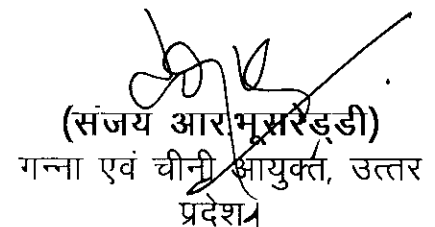 (संजय आर.भूसरेड्डी)
गन्ना एवं चीनी आयुक्त, उत्तर
प्रदेश।